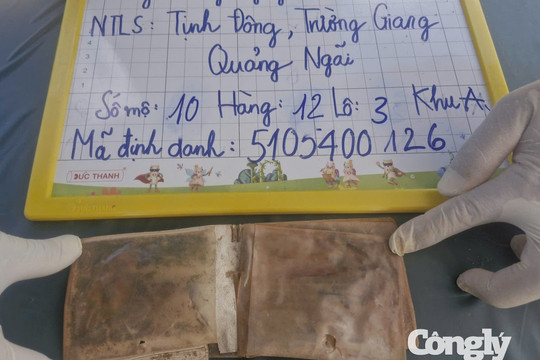 NTLS: Tịnh Đông, Trường Giang
Quảng Ngãi
Số mộ: 10 Hàng: 12 Lô: 3 Khu A:
Mã định danh: 5105400126
ĐỨC THANH
Cônglý